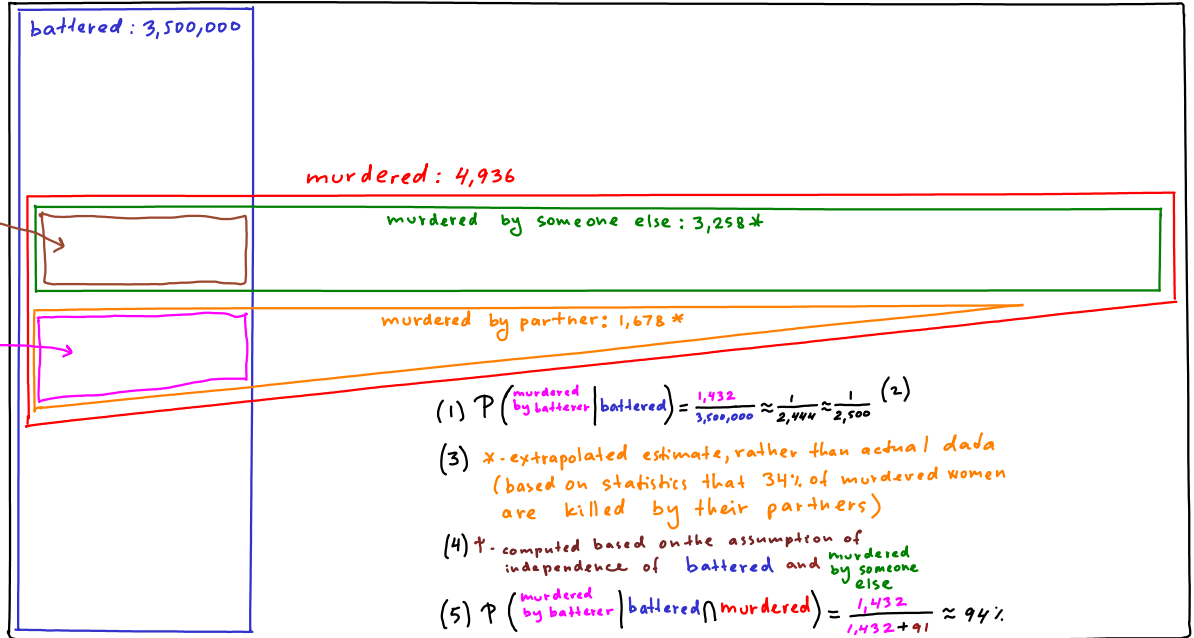 battered: 3,500,000
murdered: 4,936
murdered by someone else: 3,258*
murdered by partner: 1,678*
(1) P(murdered by batterer | battered) = 1,432/3,500,000 ≈ 1/2,444 ≈ 1/2,500 (2)
(3) *-extrapolated estimate, rather than actual dada
(based on statistics that 34% of murdered women
are killed by their partners)
(4) †- computed based on the assumption of
independence of battered and murdered by someone else
(5) P(murdered by batterer | battered ∩ murdered) = 1,432/1,432+91 ≈ 94%